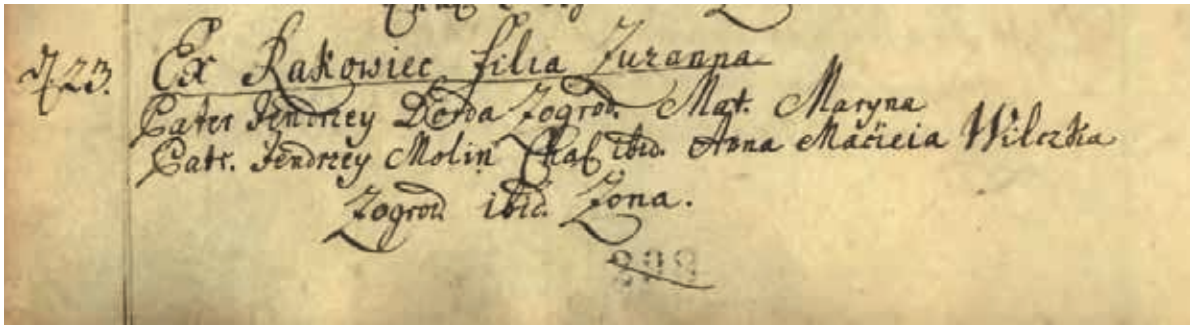 d. 23. Ex Rakowiec filia Zuzanna
Pater Jendrzey Dorda Zogrod. Mat. Maryna
Patr. Jendrzey Molin Chał. ibid. Anna Macieia Wilczka
Zogrod. ibid. Zona.